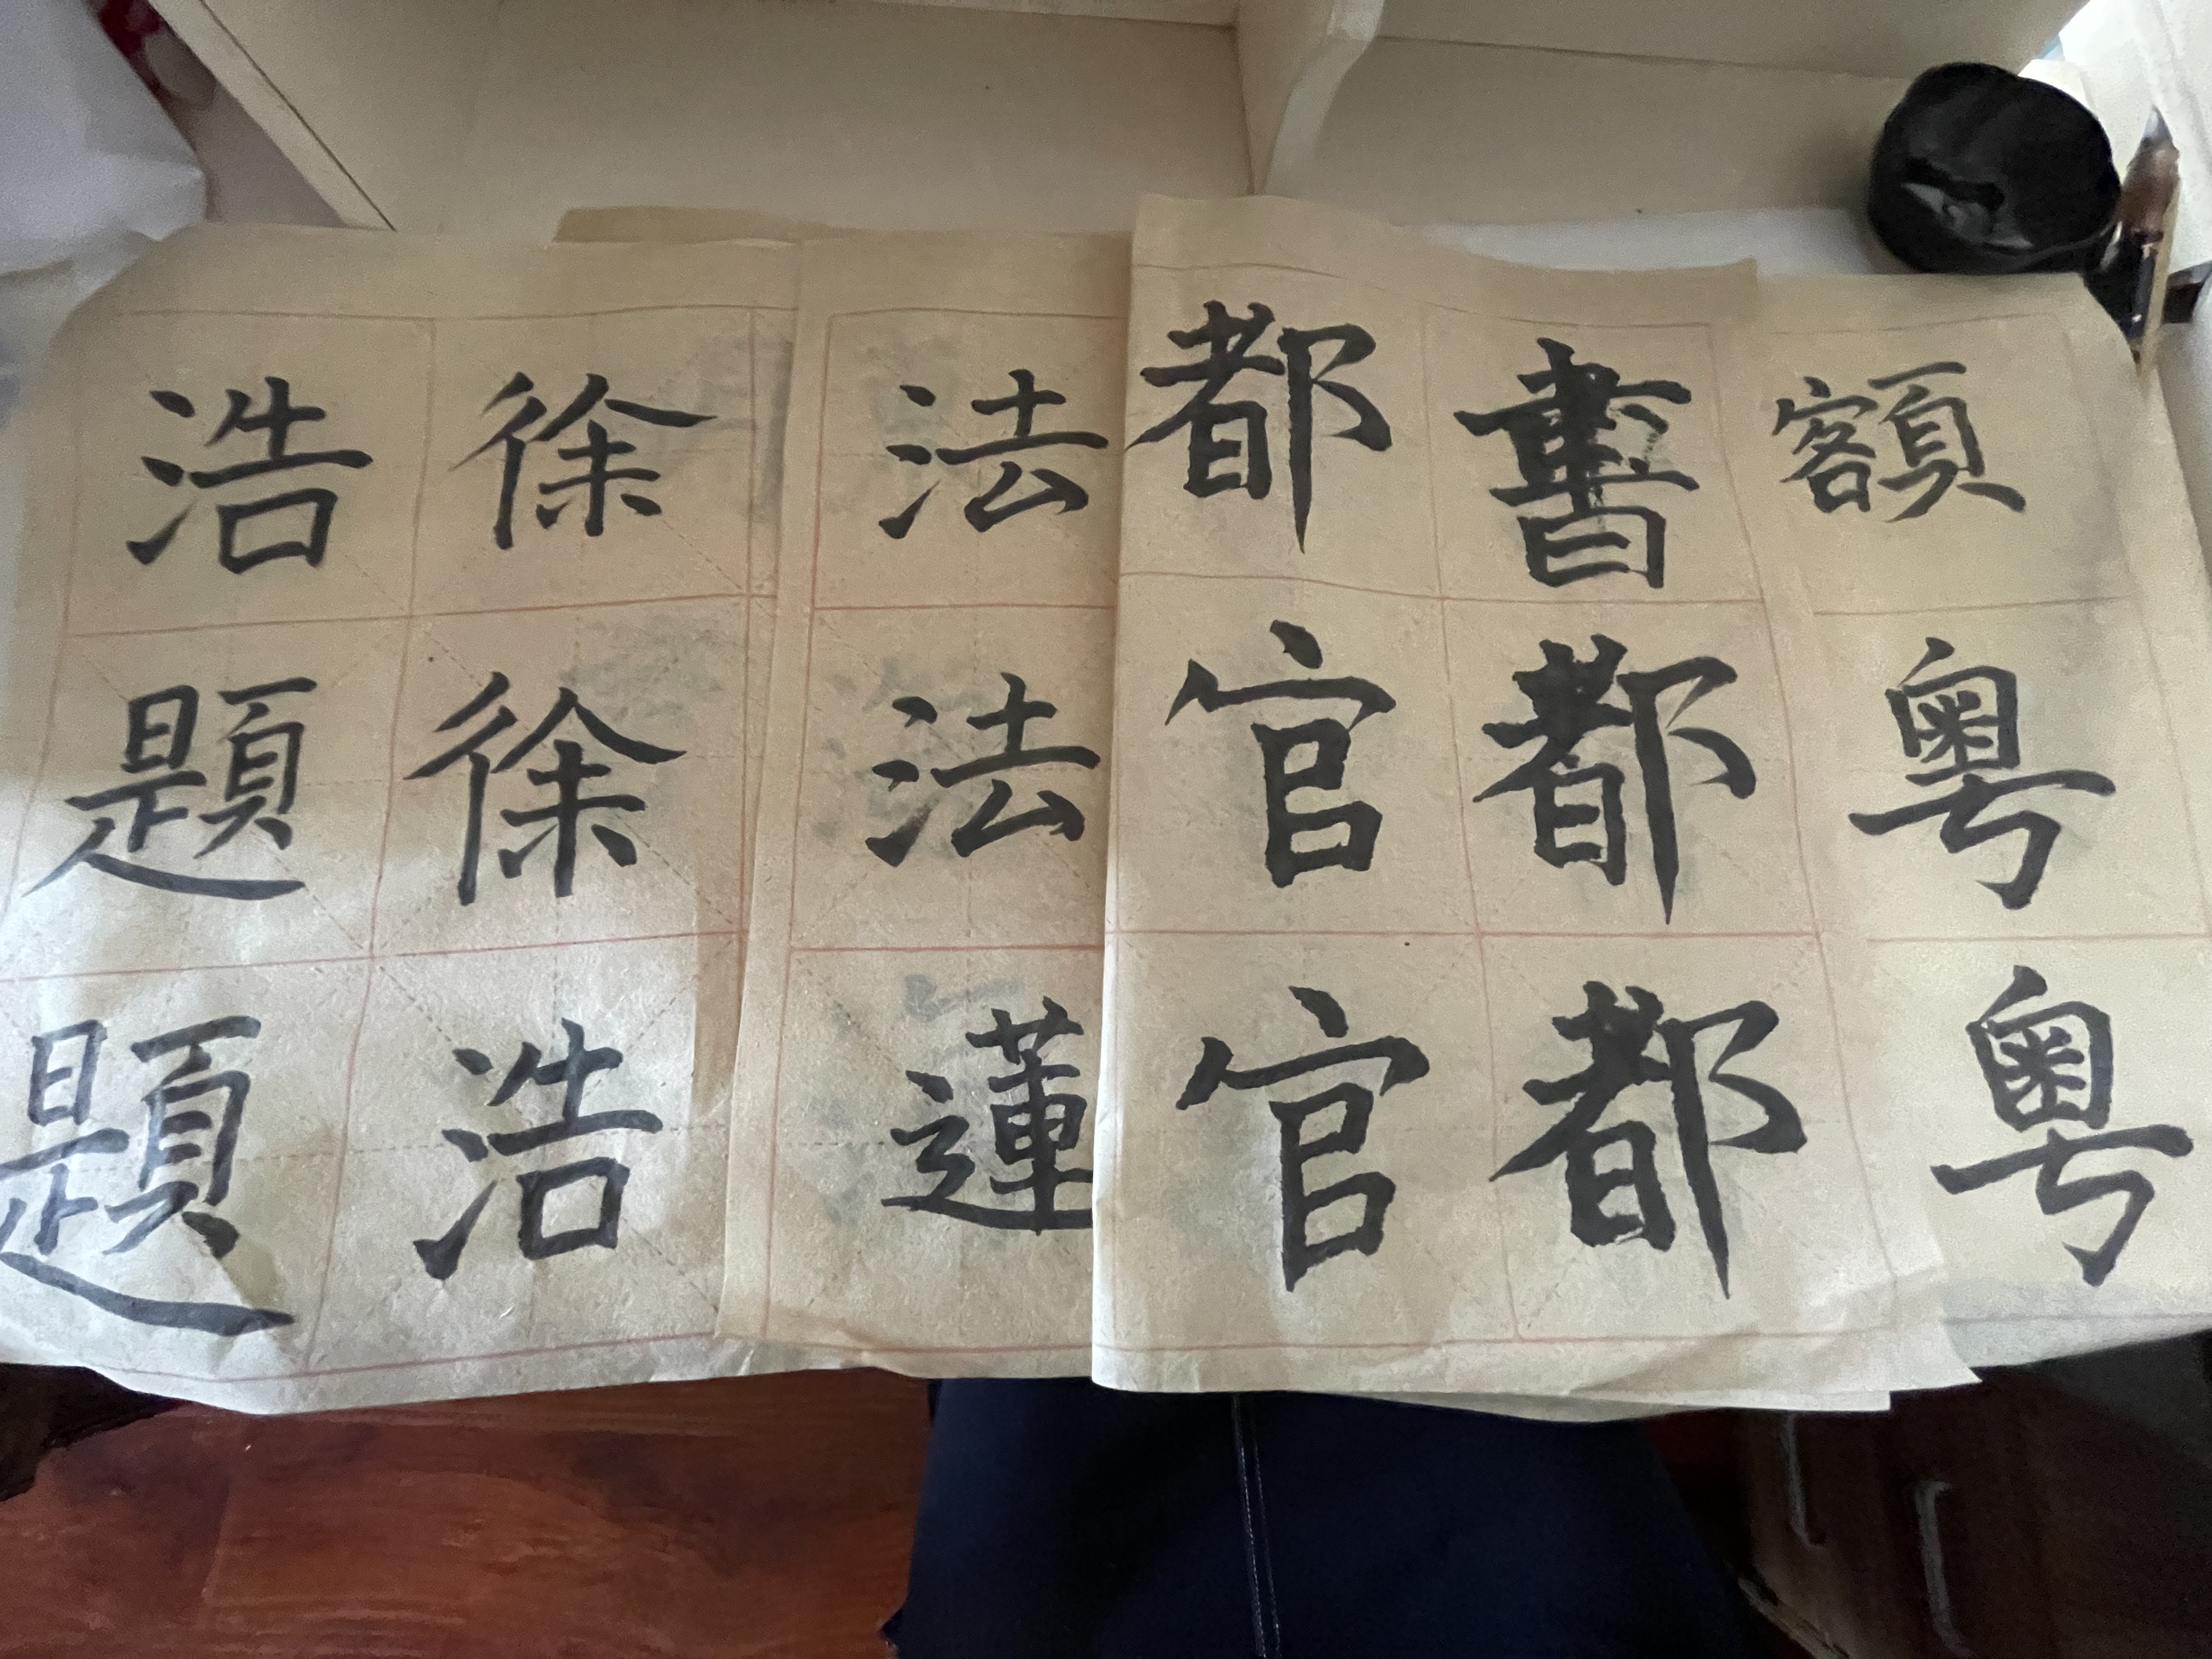 額粤粤
書都都
都官官
法法蓮
徐徐浩
浩題題